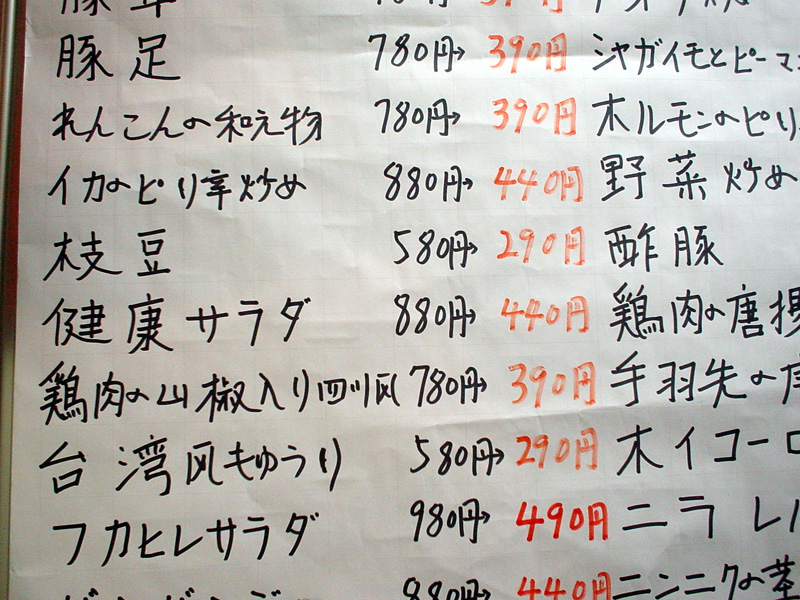 豚足 780円→ 390円 シャガイモとピーマ
れんこんの和え物 780円→ 390円 ホルモンのピリ
イカのピリ辛炒め 880円→ 440円 野菜炒め
枝豆 580円→ 290円 酢豚
健康サラダ 880円→ 440円 鶏肉の唐揚
鶏肉の山椒入り四川風 780円→ 390円 手羽先の
台湾風きゅうり 580円→ 290円 ホイコーロ
フカヒレサラダ 980円→ 490円 ニラレバ
880円→ 440円 ニンニクの茎